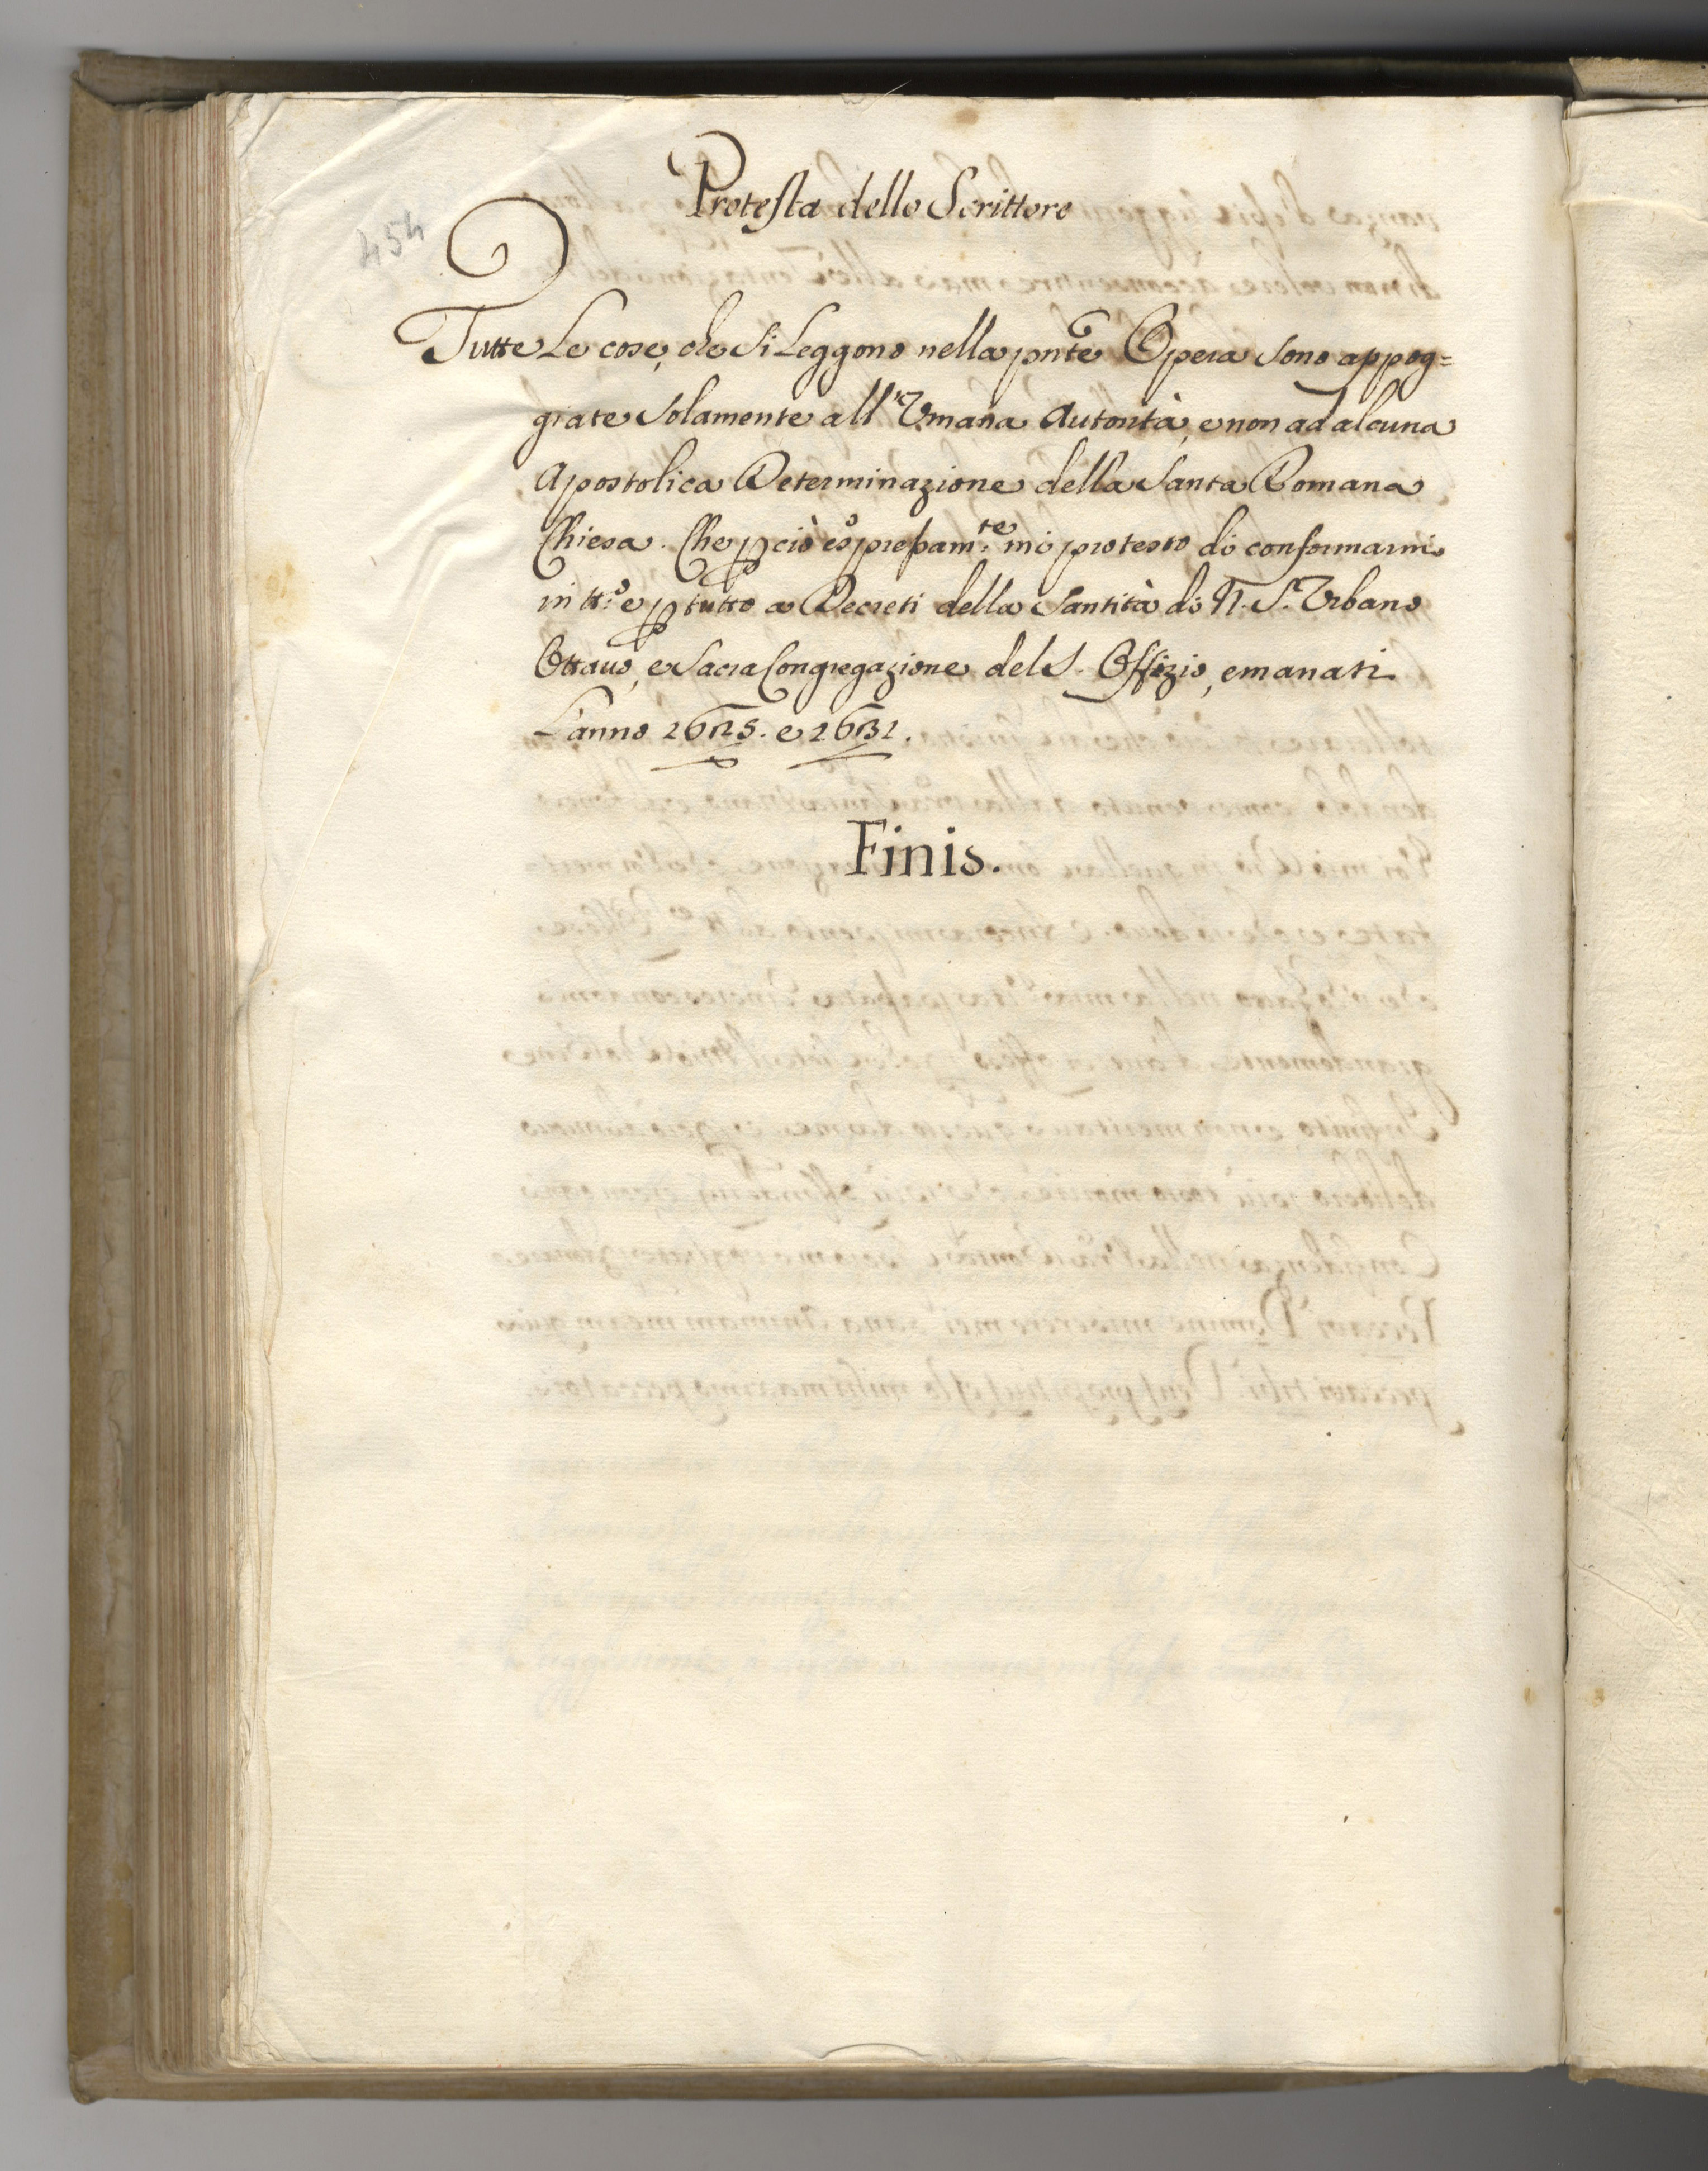 Protesta dello Scrittore
454
Tutte Le cose, che si Leggono nella pnte Opera sono appog=
giate solamente all'Vmana Autorità, e non ad alcuna
Apostolica Determinazione della Santa Romana
Chiesa. Che p ciò espressam.te mi protesto di conformarmi
in tt.o e p tutto a Decreti della Santità di N. S.r Vrbano
Ottauo, e Sacra Congregazione del S. Offizio, emanati
L'anno 1625. e 1631.
Finis.